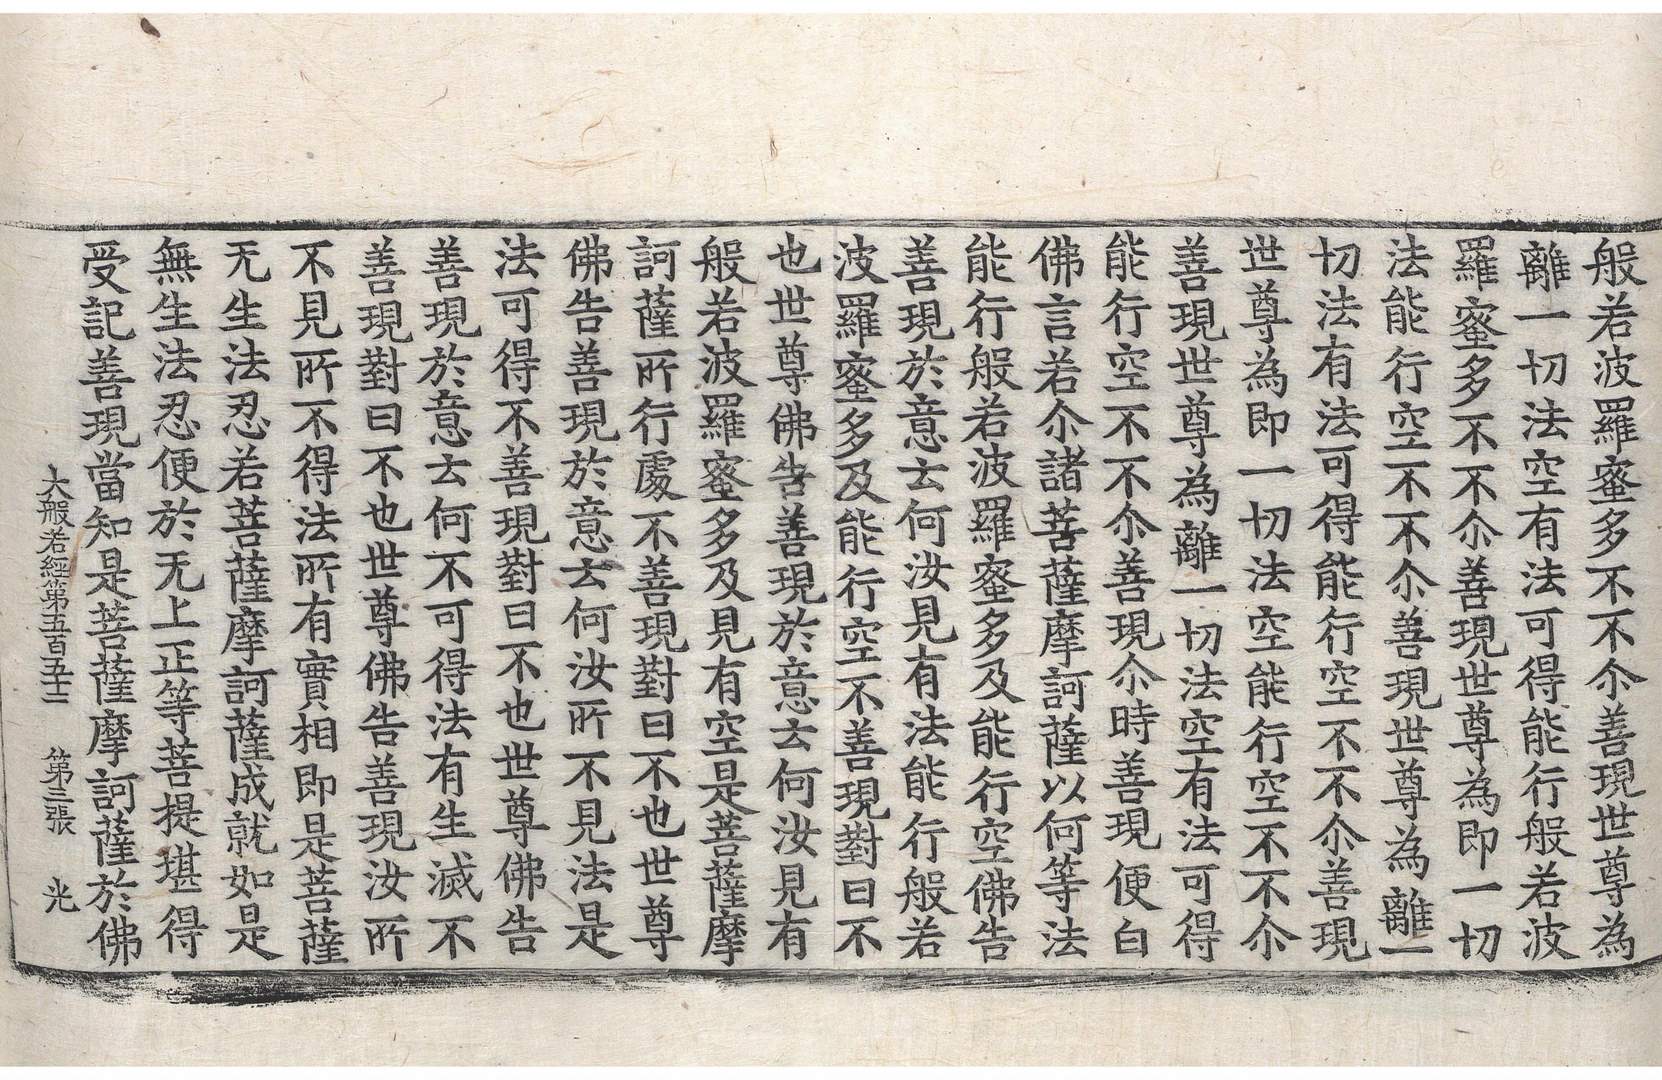 般若波羅蜜多不不尒善現世尊為
離一切法空有法可得能行般若波
羅蜜多不不尒善現世尊為即一切
法能行空不不尒善現世尊為離一
切法有法可得能行空不不尒善現
世尊為即一切法空能行空不不尒
善現世尊為離一切法空有法可得
能行空不不尒善現尒時善現便白
佛言若尒諸菩薩摩訶薩以何等法
能行般若波羅蜜多及能行空佛告
善現於意云何汝見有法能行般若
波羅蜜多及能行空不善現對曰不
也世尊佛告善現於意云何汝見有
般若波羅蜜多及見有空是菩薩摩
訶薩所行處不善現對曰不也世尊
佛告善現於意云何汝所不見法是
法可得不善現對曰不也世尊佛告
善現於意云何不可得法有生滅不
善現對曰不也世尊佛告善現汝所
不見所不得法所有實相即是菩薩
无生法忍若菩薩摩訶薩成就如是
無生法忍便於无上正等菩提堪得
受記善現當知是菩薩摩訶薩於佛
大般若經第五百五十二 第三張 光